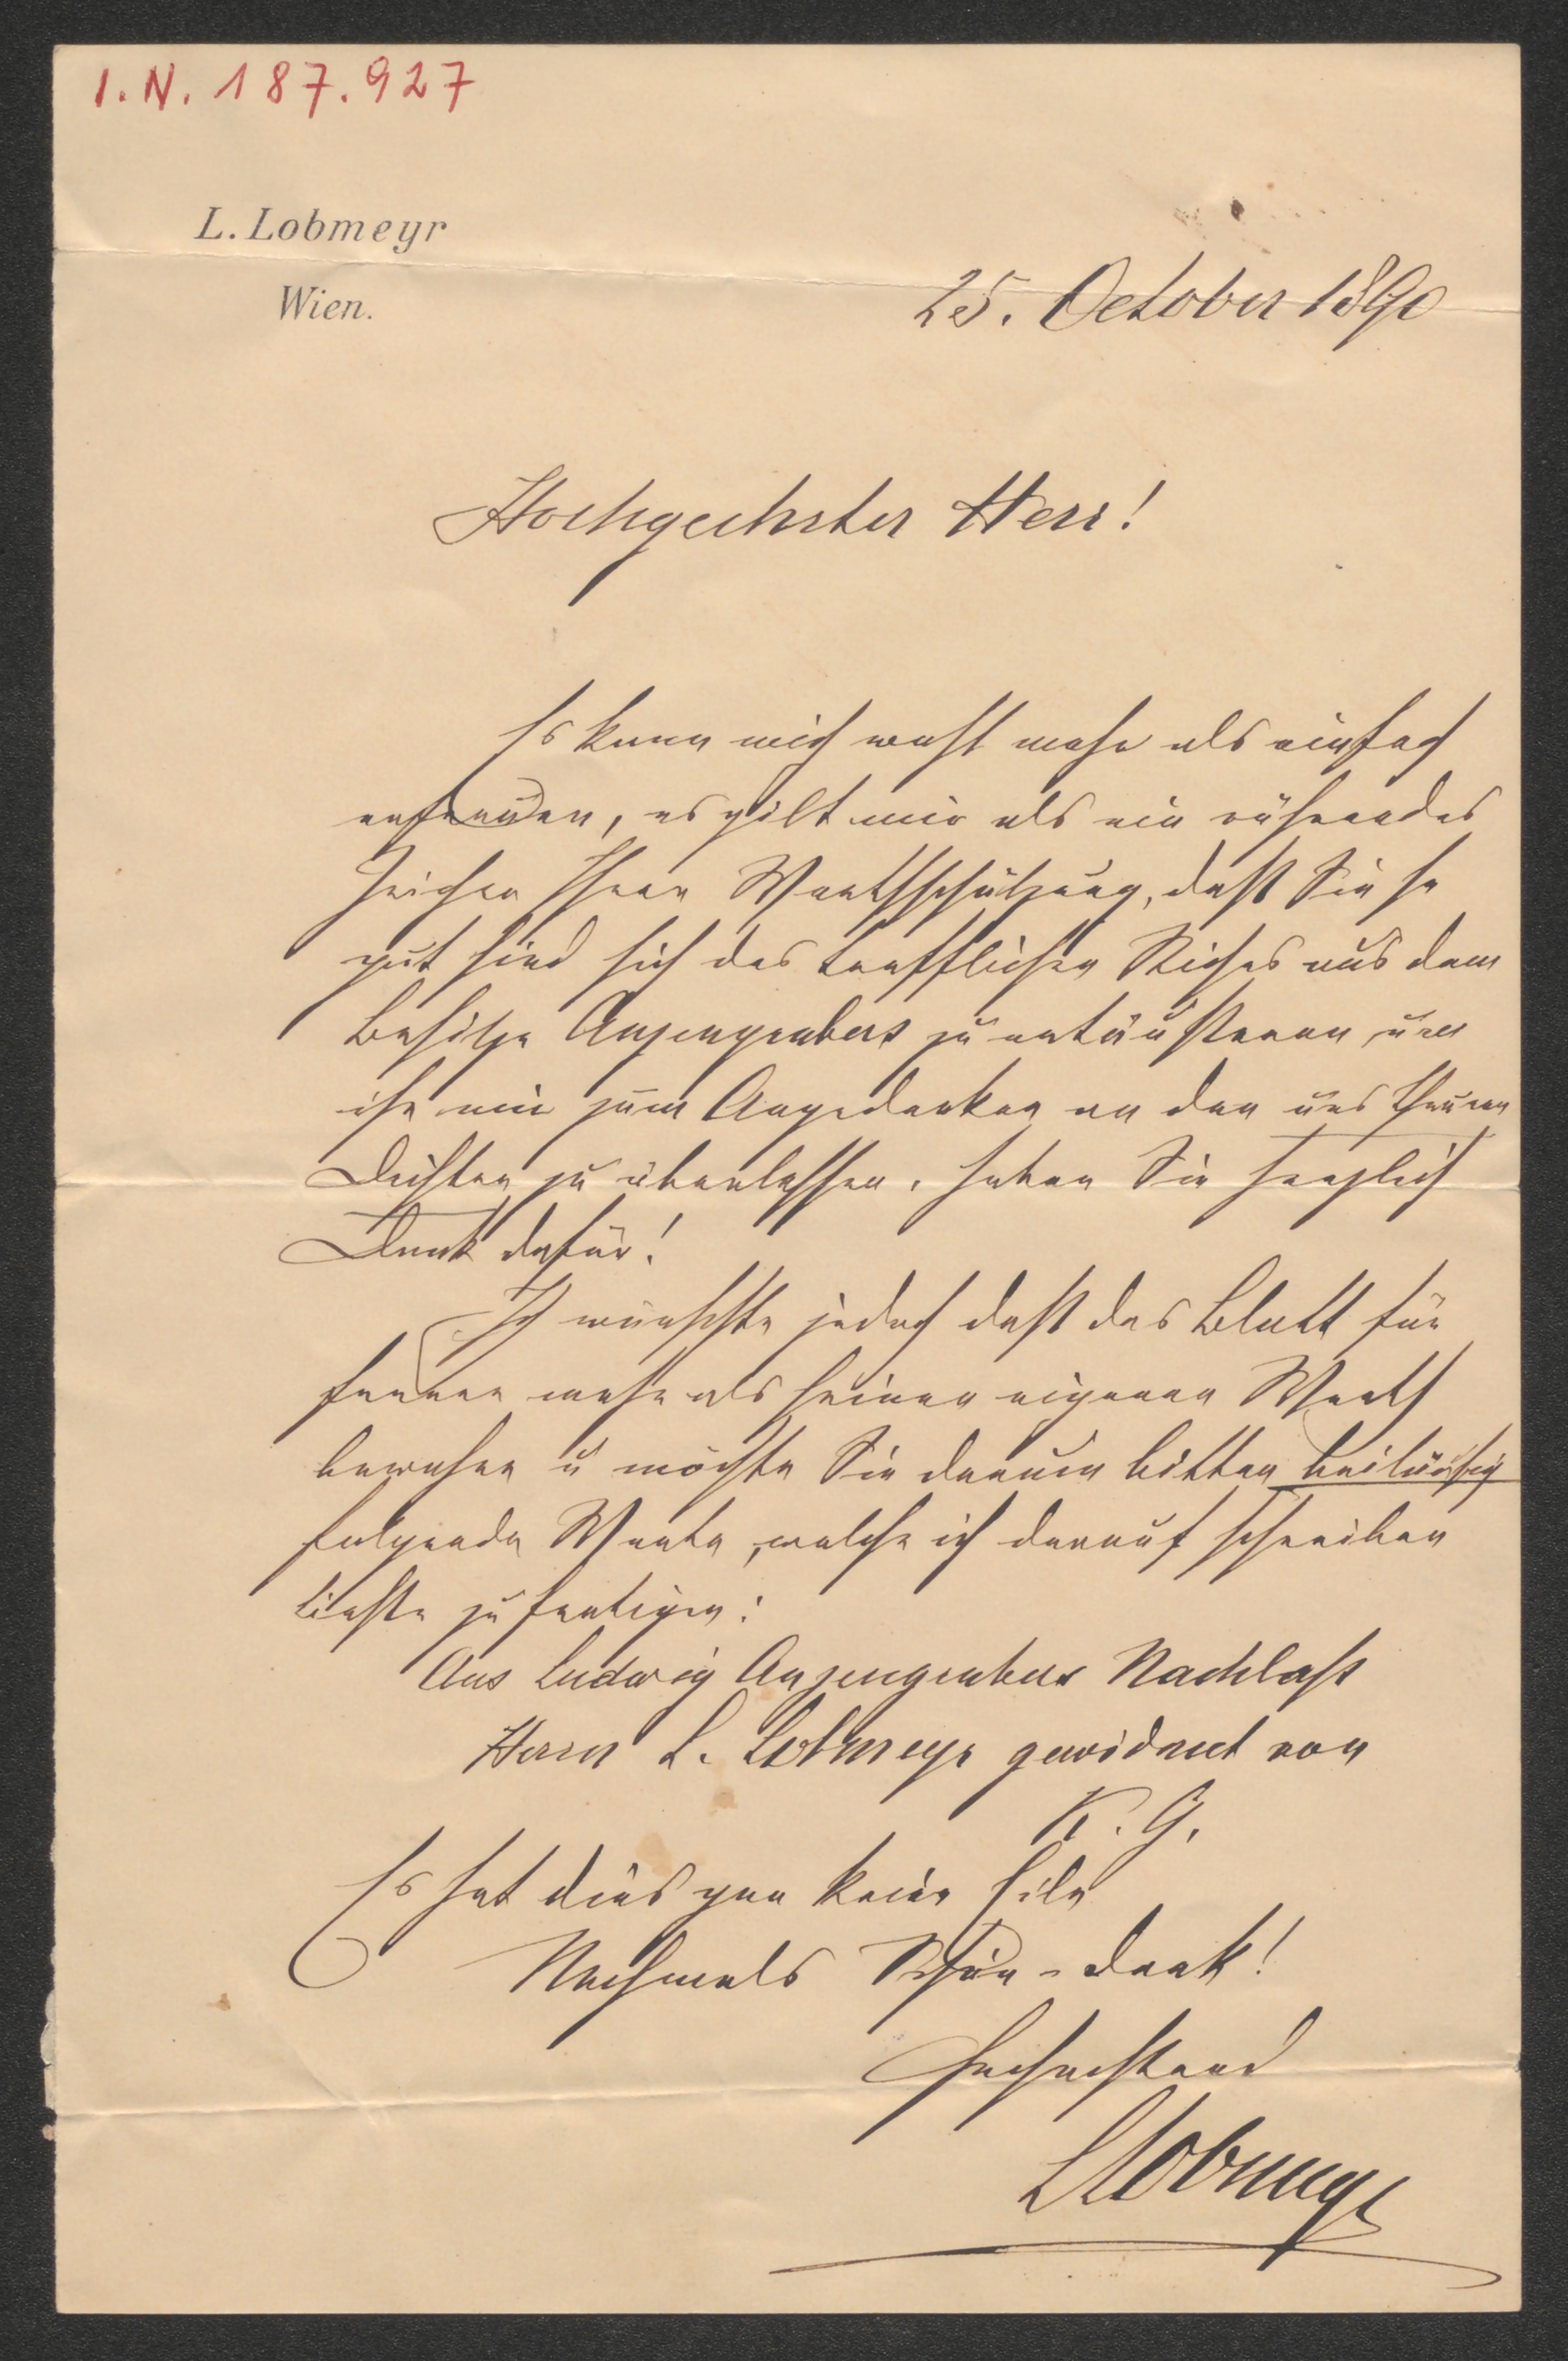 I.N. 187.927
L. Lobmeyr
Wien.
25. October 1890
Hochgeehrter Herr!
Es kann mich wohl mehr als einfach
erfreuen, es gilt mir als ein rührendes
Zeichen Ihrer Werthschätzung, daß Sie so
gut sind sich des trefflichen Stiches aus dem
Besitze Anzengrubers zu entäußern, um
ihn mir zum Angedenken an den uns theuren
Dichter zu überlassen. Haben Sie herzlich
Dank dafür!
Ich wünschte jedoch daß das Blatt für
fernere mehr als seinen eigenen Werth
bewahre u möchte Sie darum bitten beiläufig
folgende Worte, welche ich darauf schreiben
ließe zu fertigen:
Aus Ludwig Anzengrubers Nachlaß
Herrn L. Lobmeyr gewidmet von
K. G.
Es hat dies gar keine Eile
Nochmals Schön-Dank!
Hochachtend
LLobmeyr